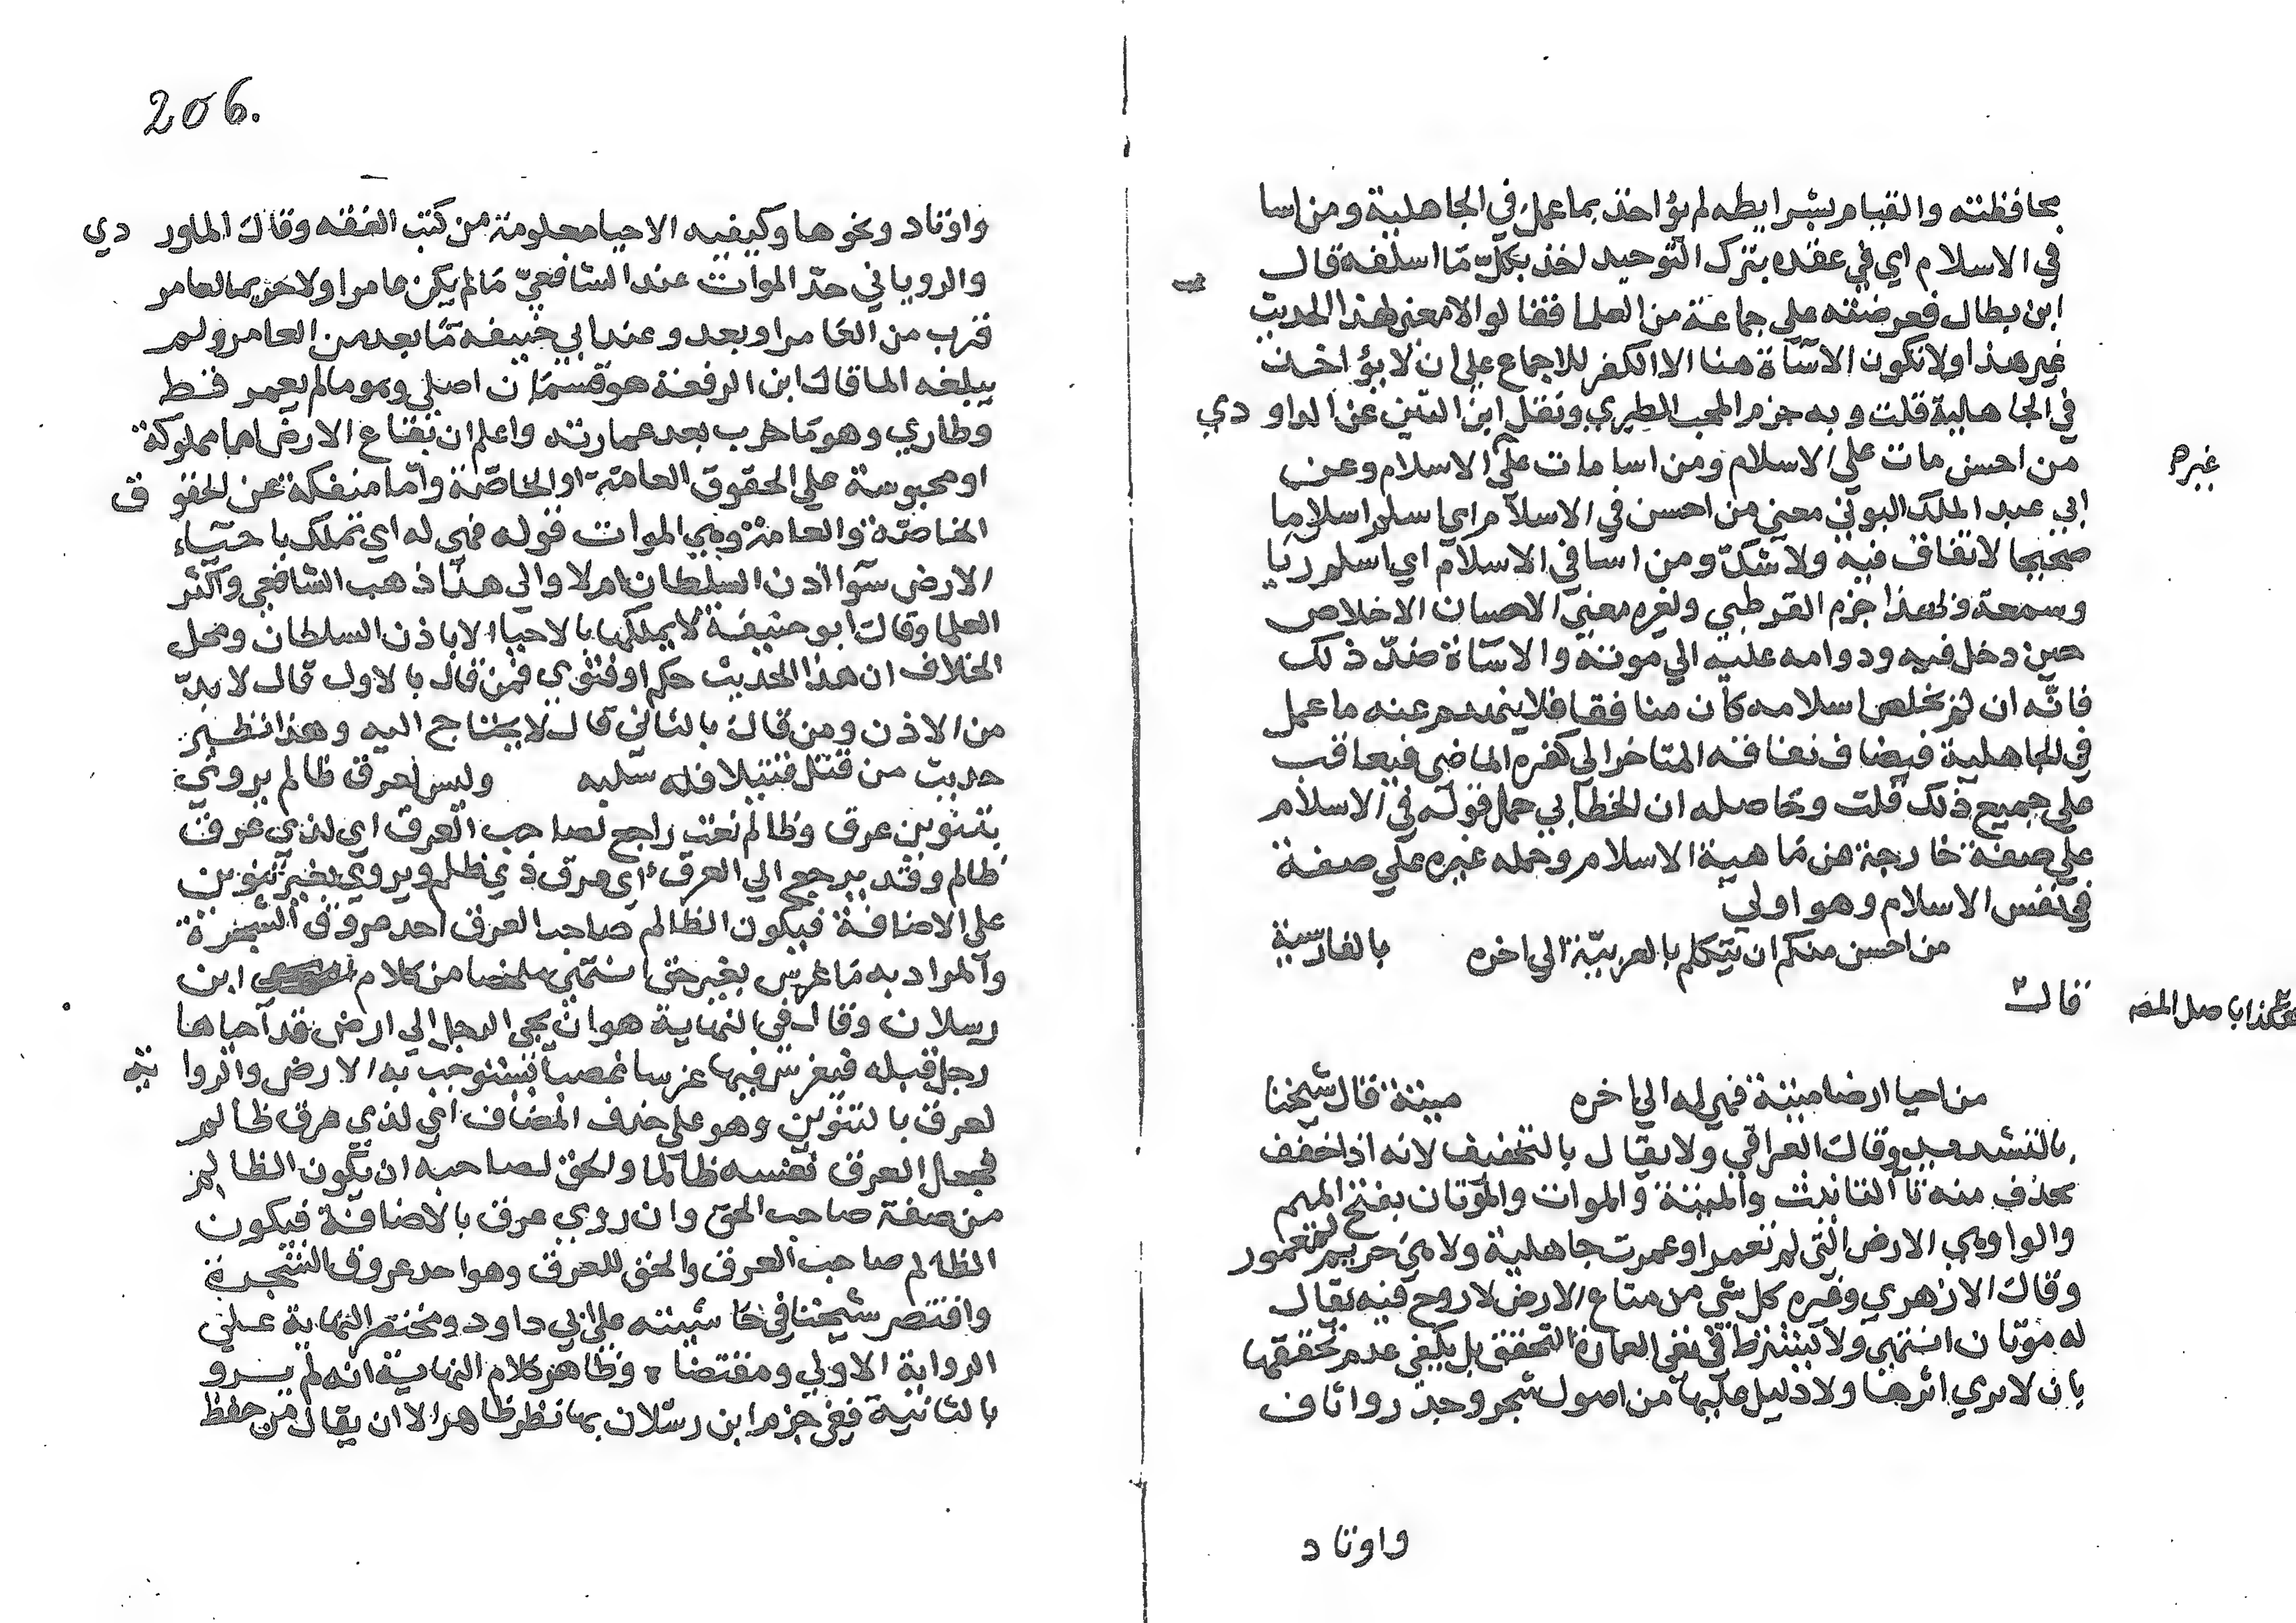 بمحافظته والقيام بشرايطه لم يؤاخذ بما عمل في الجاهلية ومن اسا
في الاسلام اي في عقده بترك التوحيد اخذ بكل ما اسلفه قال
ابن بطال فعرضته علي جماعة من العلما فقالوا لا معني لهذا الحديث
غير هذا ولا تكون الاساة هنا الا الكفر للاجماع علي ان لا يؤاخذ
في الجاهلية قلت وبه جزم المحب الطبري ونقل ابن التين عن الداودي
من احسن مات علي الاسلام ومن اسا مات علي الاسلام وعن
غيره
ابي عبد الملك البوني معني من احسن في الاسلام اي اسلم اسلاما
صحيحا لا نفاق فيه ولا شك ومن اسا في الاسلام اي اسلم ريا
وسمعة ولهذا جزم القرطبي ولغيره معني الاحسان الاخلاص
حين دخل فيه ودوامه عليه الي موته والاساة ضد ذلك
فانه ان لم يخلص اسلامه كان منافقا فلا ينهدم عنه ما عمل
في الجاهلية فيضاف نفاقه المتاخر الي كفره الماضي فيعاقب
علي جميع ذلك قلت وحاصله ان الخطابي حمل قوله في الاسلام
علي صفة خارجة عن ماهية الاسلام وحمله غيره علي صفة
في نفس الاسلام وهو اولي
من احسن منكم ان يتكلم بالعربية الي اخره بالفارسية
قال
هكذا باصل المص
من احيا ارضا ميتة فهي له الي اخره ميتة قال شيخنا
بالتشديد وقال العراقي ولا يقال بالتخفيف لانه اذا خفف
يحذف منه تا التانيث والميتة والموات والموتان بفتح الميم
والواو هي الارض التي لم تعمر او عمرت جاهلية ولا هي حريم لمعمور
وقال الازهري وغيره كل شي من متاع الارض لا روح فيه يقال
له موتان انتهي ولا يشترط في نفي العمارة التحقق بل يكفي عدم تحققها
بان لا يري اثرها ولا دليل عليها من اصول شجر وجدر واثاف
واوتاد
206.
واوتاد ونحوها وكيفيه الاحيا معلومة من كتب الفقه وقال الماوردي
والروياني حد الموات عند الشافعي ما لم يكن عامرا ولا حريما لعامر
قرب من العامر او بعد وعند ابي حنيفه ما بعد من العامر ولم
يبلغه الما قال ابن الرفعة هو قسمان اصلي وهو ما لم يعمر قط
وطاري وهو ما خرب بعد عمارته واعلم ان بقاع الارض اما مملوكة
او محبوسة علي الحقوق العامة او الخاصة واما منفكة عن الحقوق
الخاصة والعامة وهي الموات قوله فهي له اي تملك باحياء
الارض سوا اذن السلطان ام لا والي هذا ذهب الشافعي واكثر
العلما وقال ابو حنيفة لا يملكها بالاحيا الا باذن السلطان ومحل
الخلاف ان هذا الحديث حكم او فتوي فمن قال بالاول قال لا بد
من الاذن ومن قال بالثاني قال لا يحتاج اليه وهذا نظير
حديث من قتل قتيلا فله سلبه وليس لعرق ظالم يروي
بتنوين عرق وظالم نعت راجع لصاحب العرق اي لذي عرق
ظالم وقد يرجع الي العرق اي عرق ذي ظلم ويروي بغير تنوين
علي الاضافة فيكون الظالم صاحب العرق احد عروق الشجرة
والمراد به ما غرس بغير حق انتهي ملخصا من كلام ابن
رسلان وقال في النهاية هو ان يجي الرجل الي ارض قد احياها
رجل قبله فيغرس فيها غرسا غصبا ليستوجب به الارض والرواية
لعرق بالتنوين وهو علي حذف المضاف اي لذي عرق ظالم
فجعل العرق نفسه ظالما والحق لصاحبه ان يكون الظالم
من صفة صاحب الحق وان روي عرق بالاضافة فيكون
الظالم صاحب العرق والحق للعرق وهو احد عروق الشجرة
واقتصر شيخنا في حاشيته علي ابي داود ومختصر النهاية علي
الرواية الاولي ومقتضاه وظاهر كلام النهاية انه لم يرو
بالثانية ففي جزم ابن رسلان بها نظر ظاهر الا ان يقال من حفظ